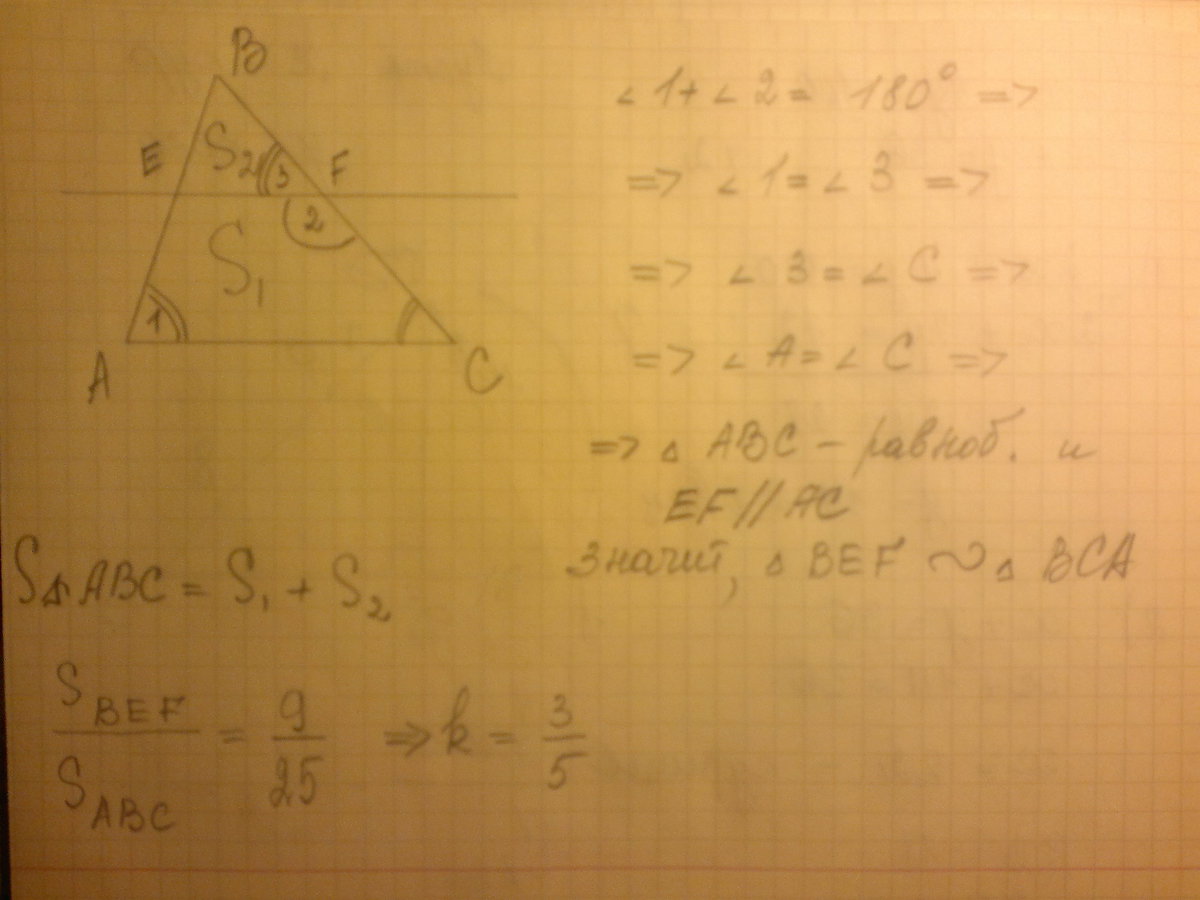 B
E S₂ 3 F
2
S₁
1
A C
∠ 1 + ∠ 2 = 180° =>
=> ∠ 1 = ∠ 3 =>
=> ∠ 3 = ∠ C =>
=> ∠ A = ∠ C =>
=> △ ABC – равноб. и
EF // AC
Значит, △ BEF ~ △ BCA
S△ABC = S₁ + S₂
S BEF / S ABC = 9/25 => k = 3/5